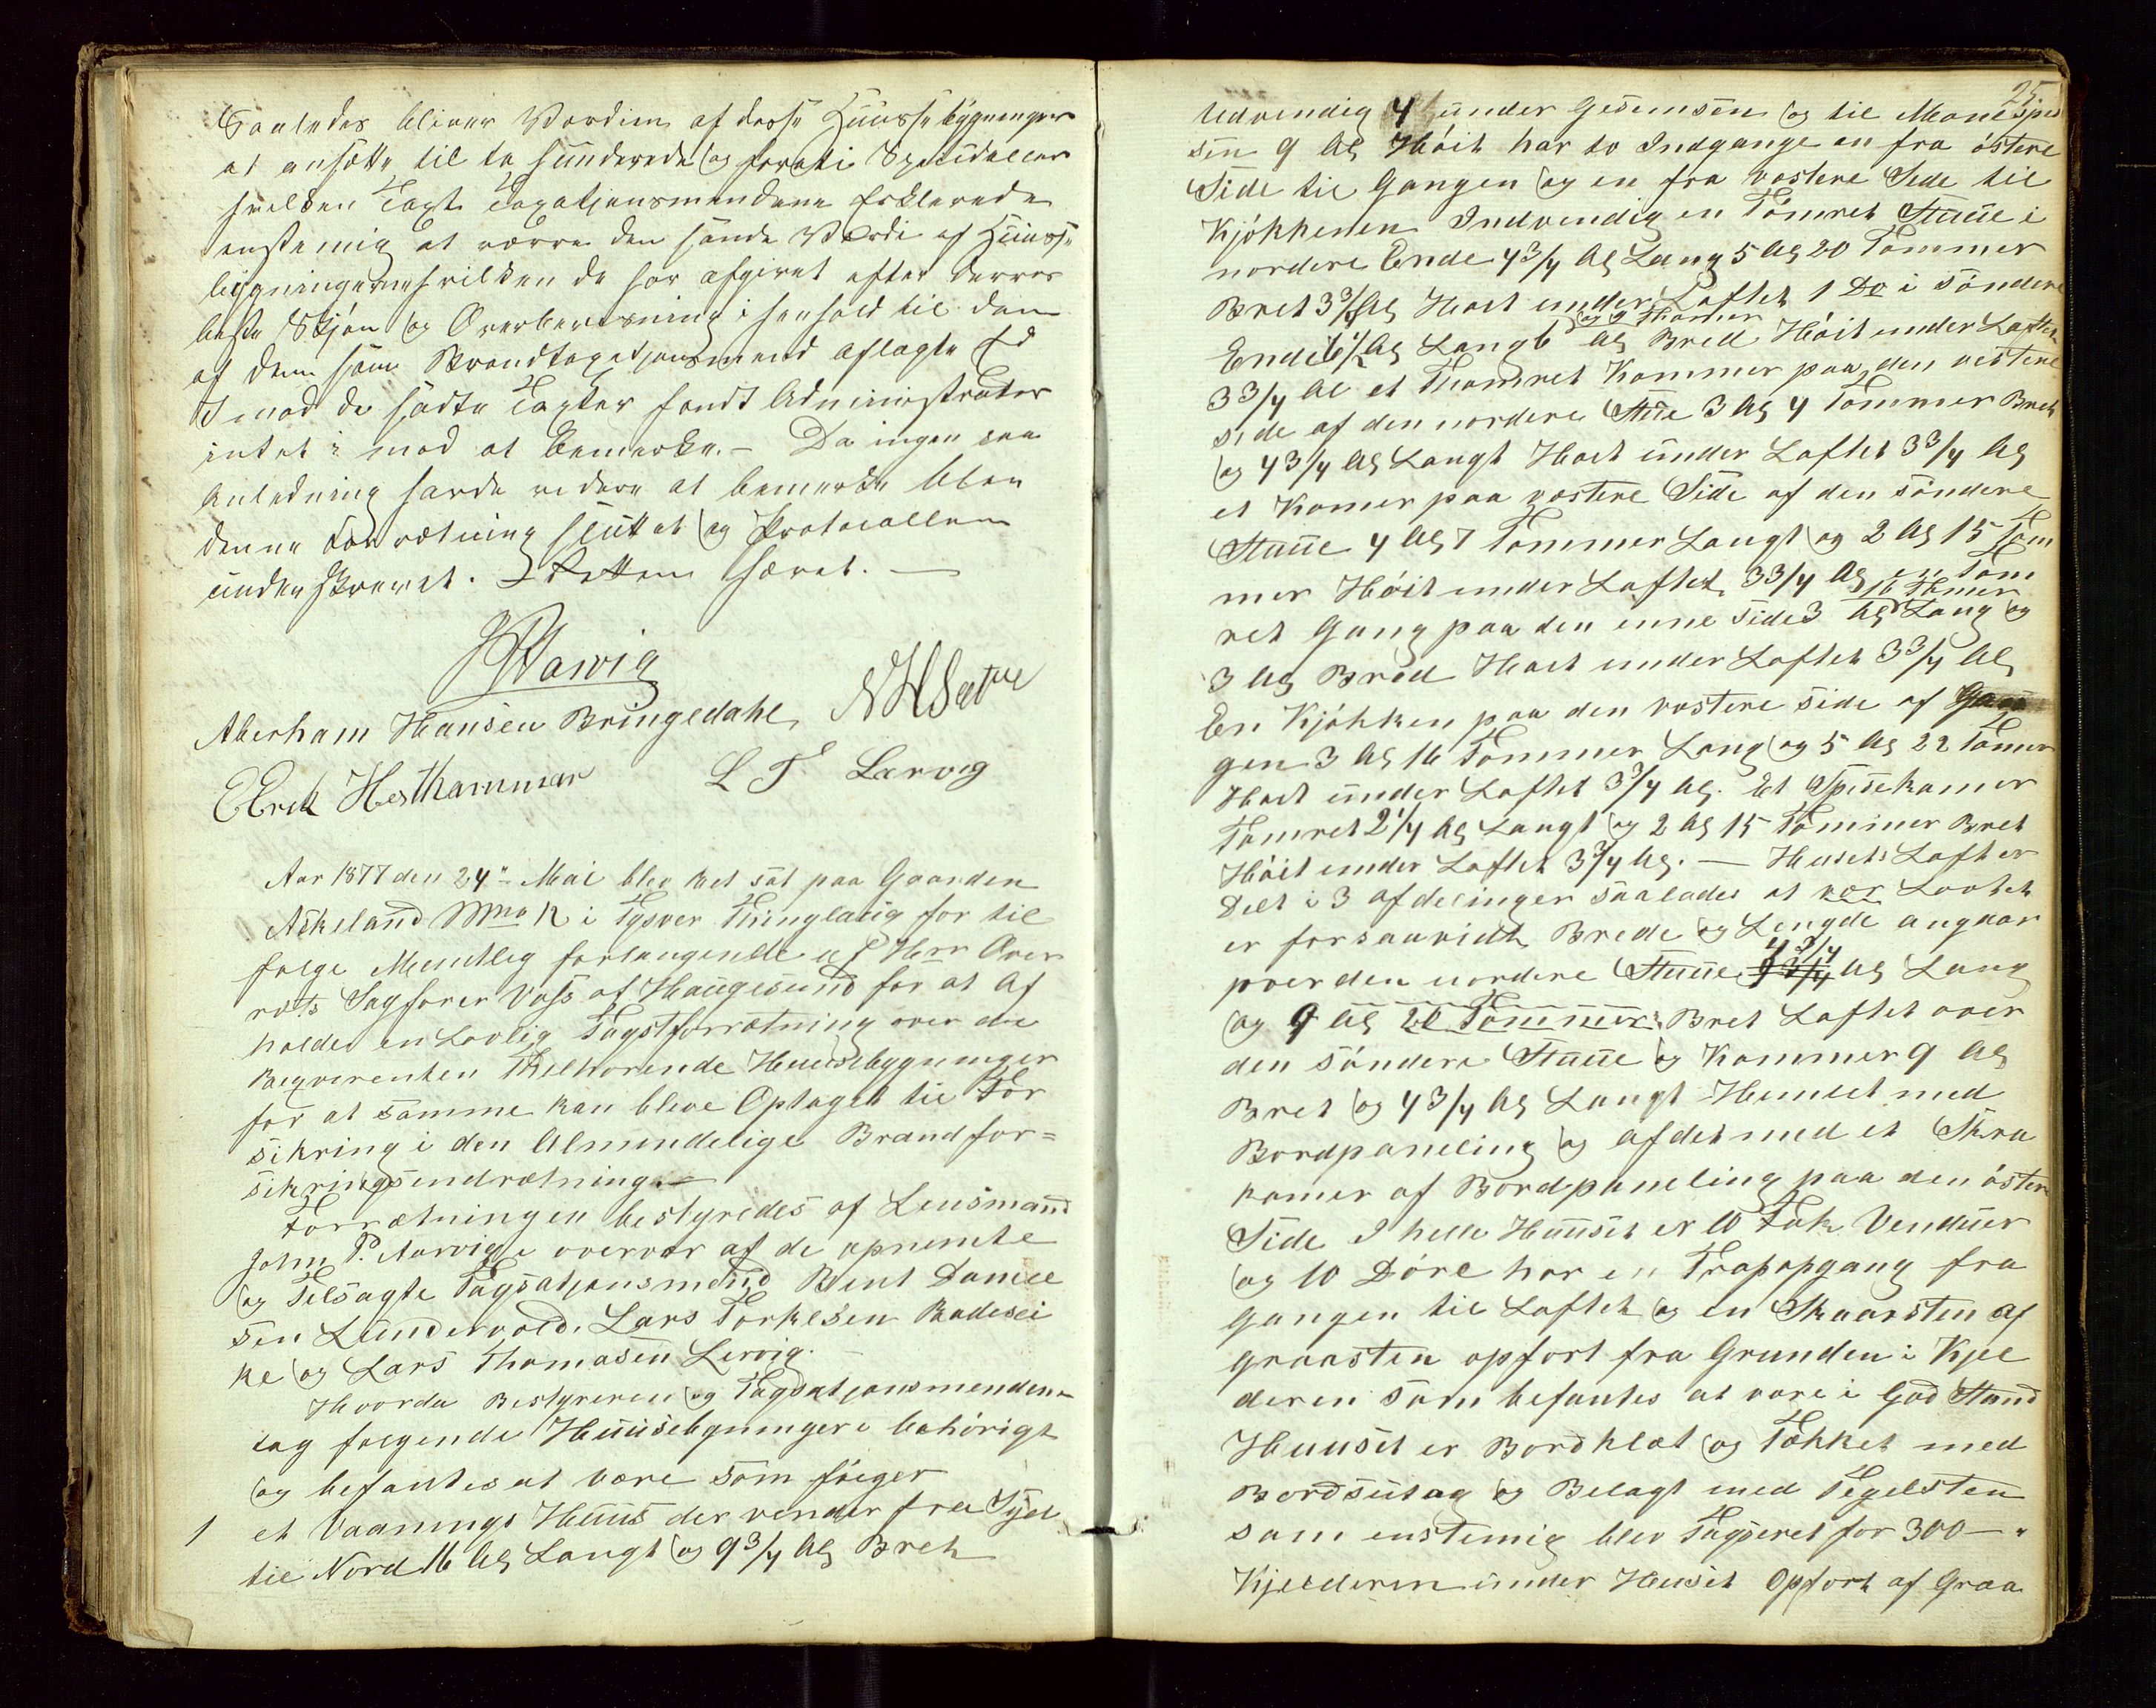 Saaledes bliver Verdien af disse Huusebygninger
at ansætte til to hunderede og foreti Speciedaler
hvilken Taxt Taxatjonsmendene erklerede
enstemig at værre den sande Verdi af Huuse
bygningerne hvilken de har afgivet efter derres
beste Skjøn og Overbevisning i henhold til den
af dem som Brandtaxatjonsmend aflagte Ed
Imod de sadte Taxter fandt Administrator
intet i mod at bemerke. — Da ingen saa
Anledning havde videre at bemerke blev
denne Forretning sluttet og Protocollen
underskrevet. Retten hævet. —
Aberham Hansen Bringedahl
Erik Hesthammer L T Lærvig
Aar 1877 den 24" Mai blev Ret sat paa Gaarden
Askeland No i Tysver Thinglaug for til
følge Muntlig forlangende af Herr Over
rets Sagfører Voss af Haugesund for at Af
holde en Lovlig Tagstforretning over de
Reqvirenten Thelhorende Huusebygninger
for at samme kan bleve Optaget til For
sikring i den Almindelige Brandfor=
sikringsindretning. —
Forretningen bestyredes af Lensmand
John P. Aarvig i overvær af de opnemte
og Telsagte Tagsatjonsmend Bent Daniel
sen Lundervold. Lars Torkelsen Badesei
ke og Lars Thomasen Lervig. —
Hvorda Bestyreren og Tagsatjonsmendene
tog følgende Huusebygninger i behørigt
og befantes at være som følger
1 et Vaanings Huus der vender fra Syd
til Nord 16 Al Langt og 9 3/4 Al Bret
25
Udvendig 4 under Gesemsen og til Mønespid
sen 9 Al Høit har to Indgange en fra østere
Side til Gangen og en fra vestere Side til
Kjøkkenen Indvendig en Tømret Stuue i
nordere Ende 4 3/4 Al Lang 5 Al 20 Tommer
Bret 3 3/4 Al Høit under Loftet 1 Do i søndere
og 9 Tomer
Ende 6 1/2 Al Lang 6 Al Bred Høit under Loftet
3 3/4 Al et Thomret Kammer paa den vestere
side af den nordere Stue 3 Al 4 Tommer Bret
og 4 3/4 Al Langt Høit under Loftet 3 3/4 Al
et Kamer paa vestere Side af den søndere
Stuue 4 Al 7 Tommer Langt og 2 Al 15 Tom
mer Høit under Loftet 3 3/4 Al en Tom
16 Tomer
ret Gang paa den enne side 3 Al Lang og
3 Al Bred Høit under Loftet 3 3/4 Al
En Kjøkken paa den vestere side af Gan
gen 3 Al 16 Tommer Lang og 5 Al 22 Tomer
Høit under Loftet 3 3/4 Al. Et Spisekamer
Tømret 2 1/4 Al Langt og 2 Al 15 Tommer Bret
Høit under Loftet 3 3/4 Al. — Husets Loft er
Delt i 3 afdelinger saaledes at vær Loftet
er forsaavidt Brede og Lengde angaar
4 3/4
over den nordere Stuue 9 3/4 Al Lang
og 9 Al 20 Tommer Bret Loftet over
den søndere Stuue og Kammer 9 Al
Bret og 4 3/4 Al Langt Himlet med
Bordpaneling og afdet med et Skra
kamer af Bordpaneling paa den østere
Side I hele Huuset er 10 Fak Venduer
og 10 Døre har en Trapopgang fra
gangen til Loftet og en Skaarsten af
graasten opført fra Grunden i Kjel
deren som befantes at være i God Stand
Huuset er Bordklæt og Tækket med
Bordsutag og Belagt med Tegelsten
som enstemig blev Tagseret for 300 — "
Kjelderen under Huuset Opført af Graa